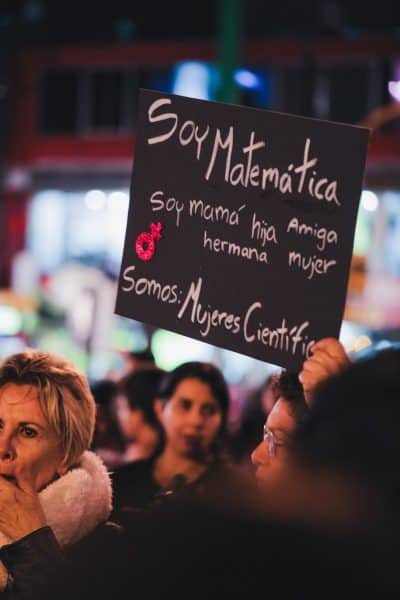 Soy Matemática
Soy mamá hija Amiga
hermana mujer
Somos: Mujeres Científic